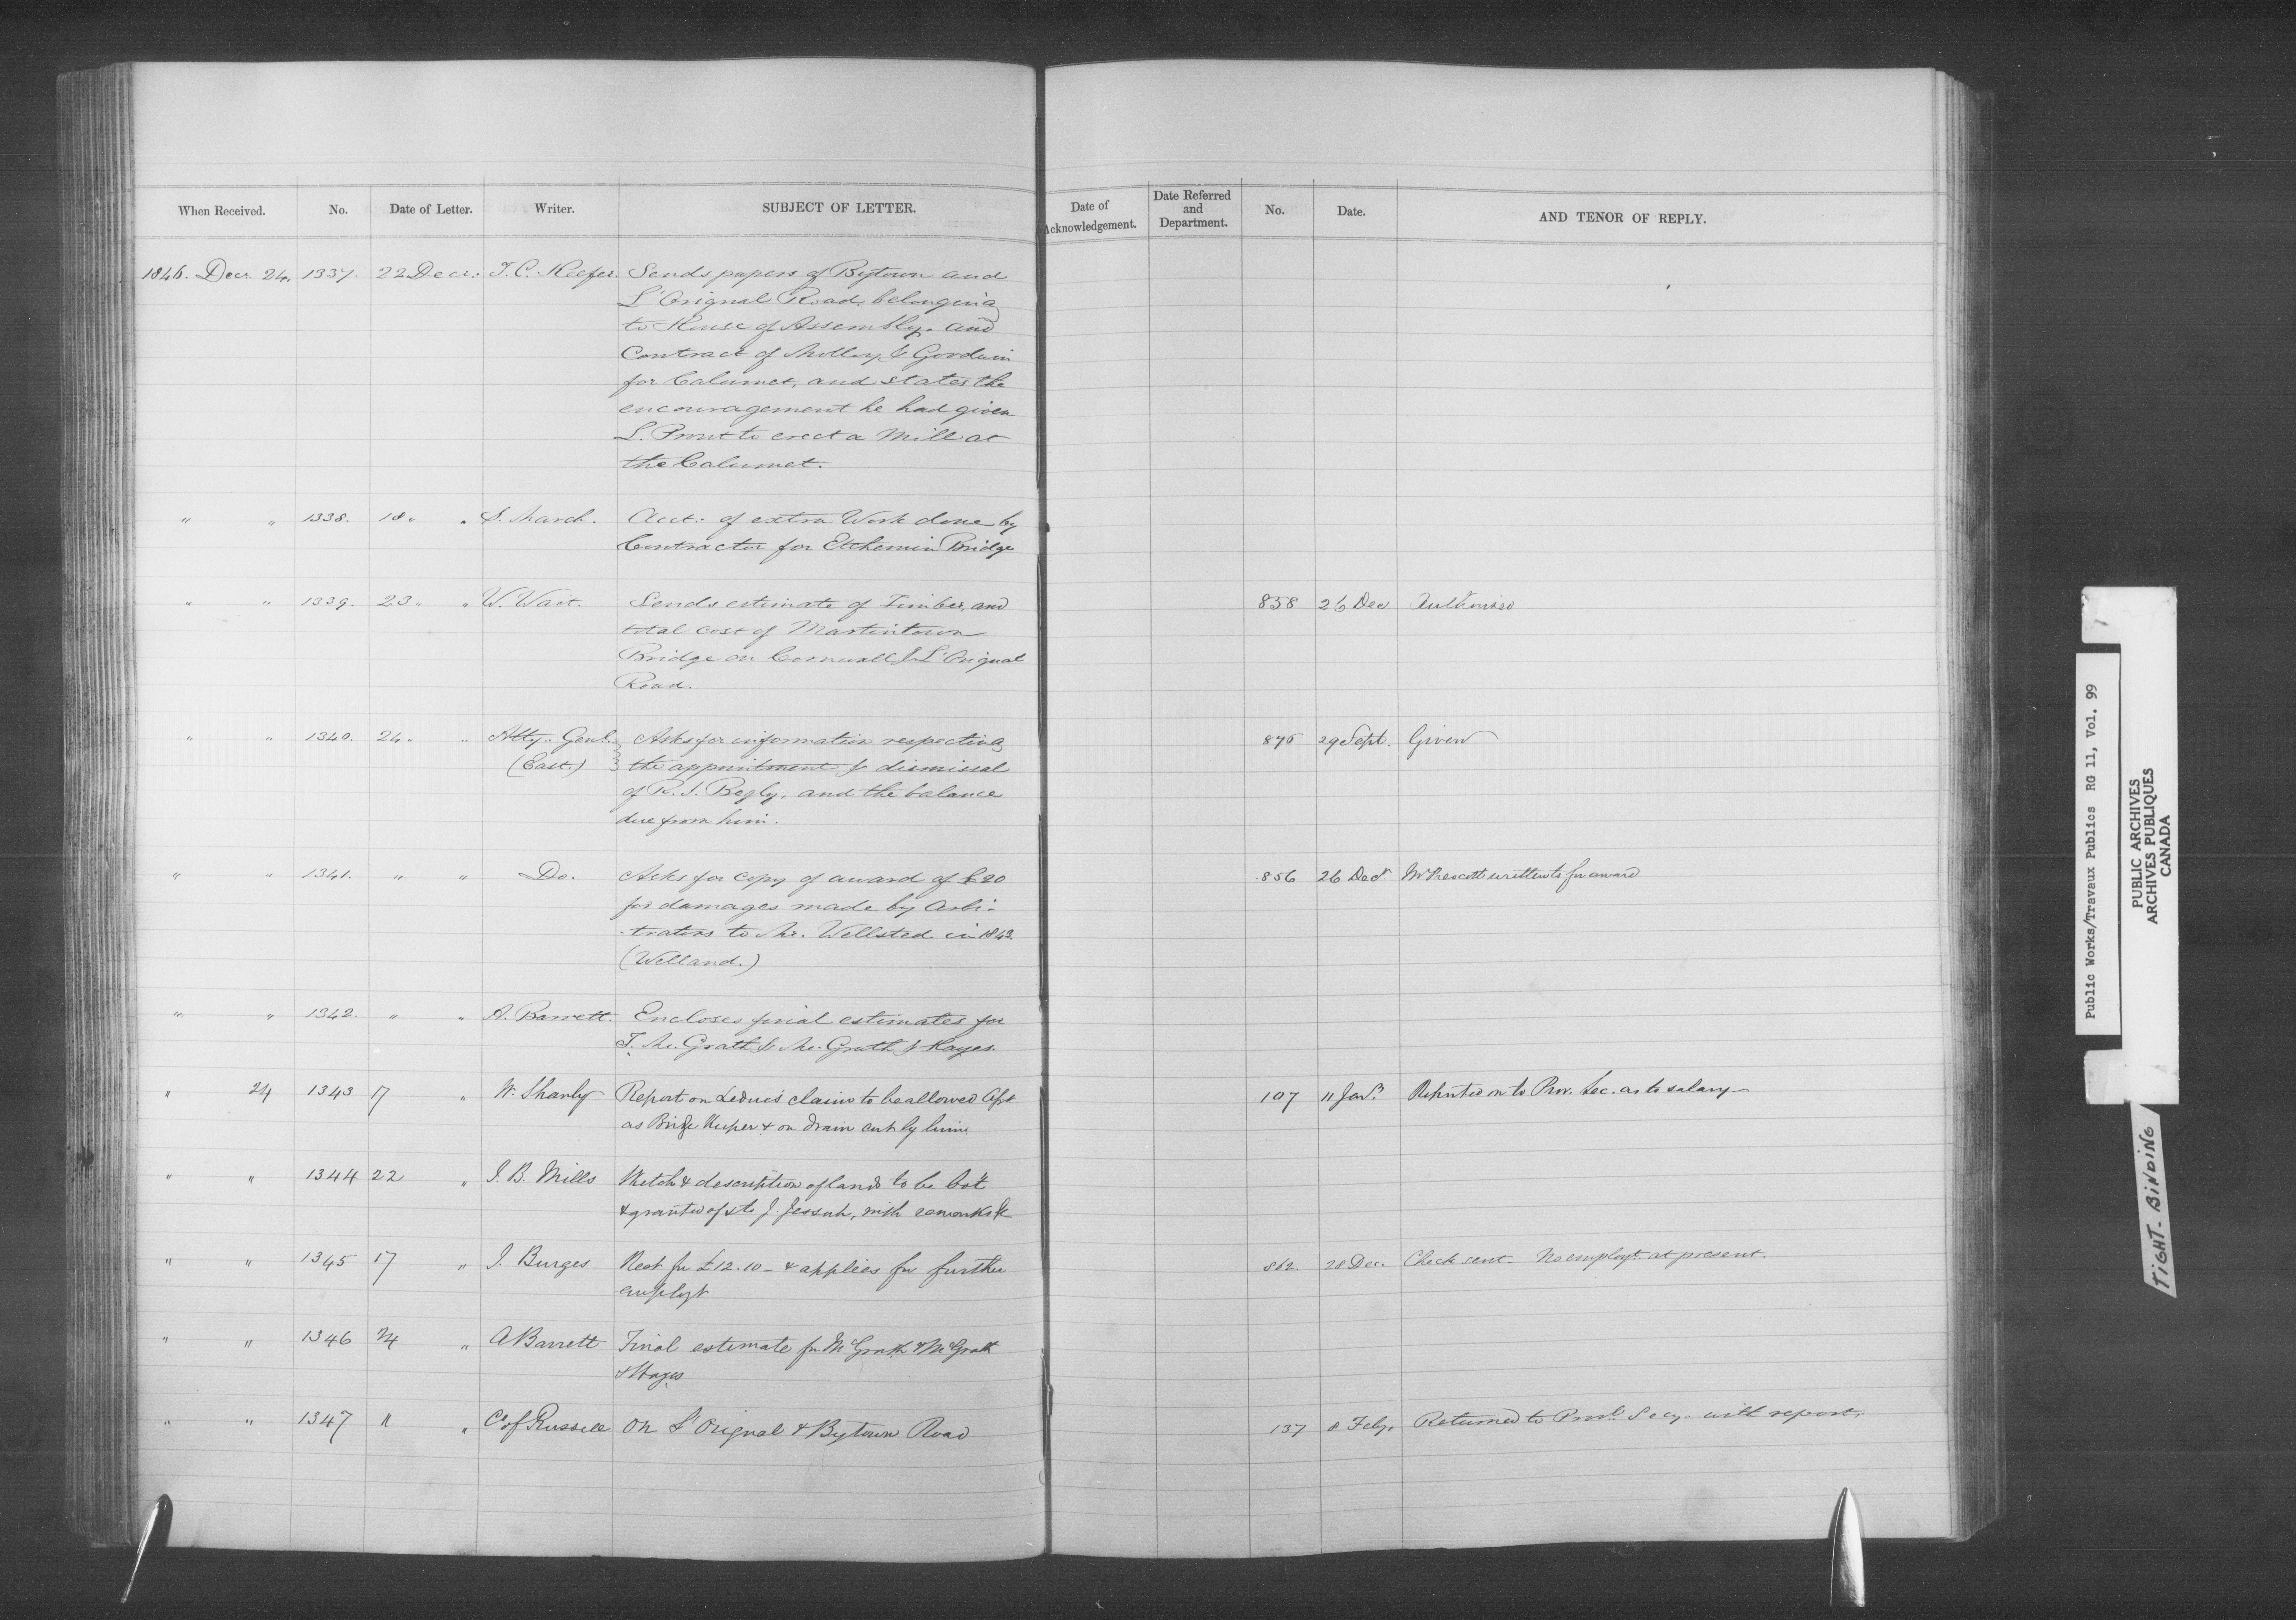 When Received. No. Date of Letter. Writer. SUBJECT OF LETTER.
Date of Acknowledgement. Date Referred and Department. No. Date. AND TENOR OF REPLY.
1846. Decr. 24. 1337. 22 Decr. T. C. Keefer. Sends papers of Bytown and
L'Orignal Road, belonging
to House of Assembly. and
Contract of & Gordwin
for Calumet, and states the
encouragement he had given
L. to erect a Mill at
the Calumet.
" " 1338. 18 " " S. March. Acct: of extra Work done by
Contractor for Etchemin Bridge
" " 1339. 23 " " W. Wait. Sends estimate of Timber, and 858 26 Dec Authorised
total cost of Martintown
Bridge on Cornwall & L'Orignal
Road.
" " 1340. 24 " " Atty. Genl. Asks for information respecting 29 Sept. Given
(East.) the appointment & dismissal
of R. S. Begly, and the balance
due from him.
" " 1341. " " Do. Asks for copy of award of £20 856 26 Decr Mr Prescott written to for award
for damages made by Arbi-
-trators to Mr. Wellsted in 1843.
(Welland.)
" " 1342. " " A. Barrett. Encloses final estimates for
T. Mc.Grath & Mc.Grath & Hayes.
" 24 1343 17 " W. Shanly Report on Leduc's claim to be allowed
as Bridge Keeper & on drain cut by him 107 11 Jany. Reported on to Prov. Sec. as to salary
" " 1344 22 " J. B. Mills Sketch & description of lands to be bot
& granted of & to J. Jessup, with remarks &c
" " 1345 17 " J. Burges Rect for £12.10 - & applies for further 862. 28 Dec. Check sent - No employt. at present.
employt
" " 1346 24 " A Barrett Final estimate for McGrath & McGrath
& Hayes
" " 1347 " " Co of Russell On L'Orignal & Bytown Road 137 8 Feby. Returned to Provl. Secy. with report.
Public Works/Travaux Publics RG 11, Vol. 99
PUBLIC ARCHIVES
ARCHIVES PUBLIQUES
CANADA
TIGHT BINDING